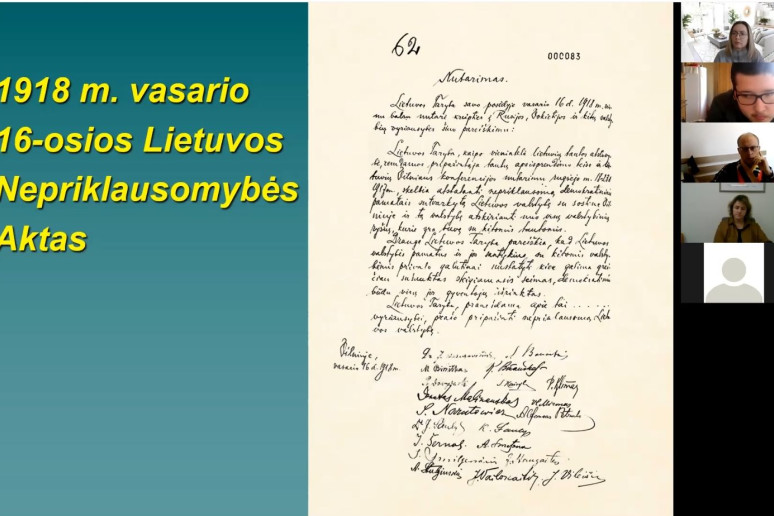 1918 m. vasario
16-osios Lietuvos
Nepriklausomybės
Aktas
62
000083
Nutarimas.
Lietuvos Taryba savo posėdyje vasario 16 d. 1918 m. vie
nu balsu nutarė kreiptis į Rusijos, Vokietijos ir kitų valsty
bių vyriausybes šiuo pareiškimu:
Lietuvos Taryba, kaipo vienintelė lietuvių tautos atstovy
bė, remdamos pripažintąja tautų apsisprendimo teise ir lie
tuvių Vilniaus konferencijos nutarimu rugsėjo m. 18-23 d.
1917 m., skelbia atstatanti nepriklausomą demokratiniais
pamatais sutvarkytą Lietuvos valstybę su sostine Vil
niuje ir tą valstybę atskirianti nuo visų valstybinių
ryšių, kurie yra buvę su kitomis tautomis.
Drauge Lietuvos Taryba pareiškia, kad Lietuvos
valstybės pamatus ir jos santykius su kitomis valsty
bėmis privalo galutinai nustatyti kiek galima grei
čiau sušauktas steigiamasis seimas, demokratiniu
būdu visų jos gyventojų išrinktas.
Lietuvos Taryba, pranešdama apie tai . . . . . .
vyriausybei, prašo pripažinti nepriklausomą Lietu
vos valstybę.
Vilniuje,
vasario 16 d. 1918 m.
M. Biržiška
Donatas Malinauskas
S. Narutowicz Alfonsas Petrulis
J. Šernas A. Smetona
J. Vileišis